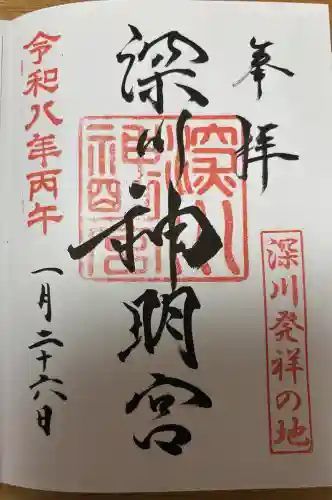 奉拝
深川発祥の地
深川神明宮
深川神明宮
令和八年丙午
一月二十六日